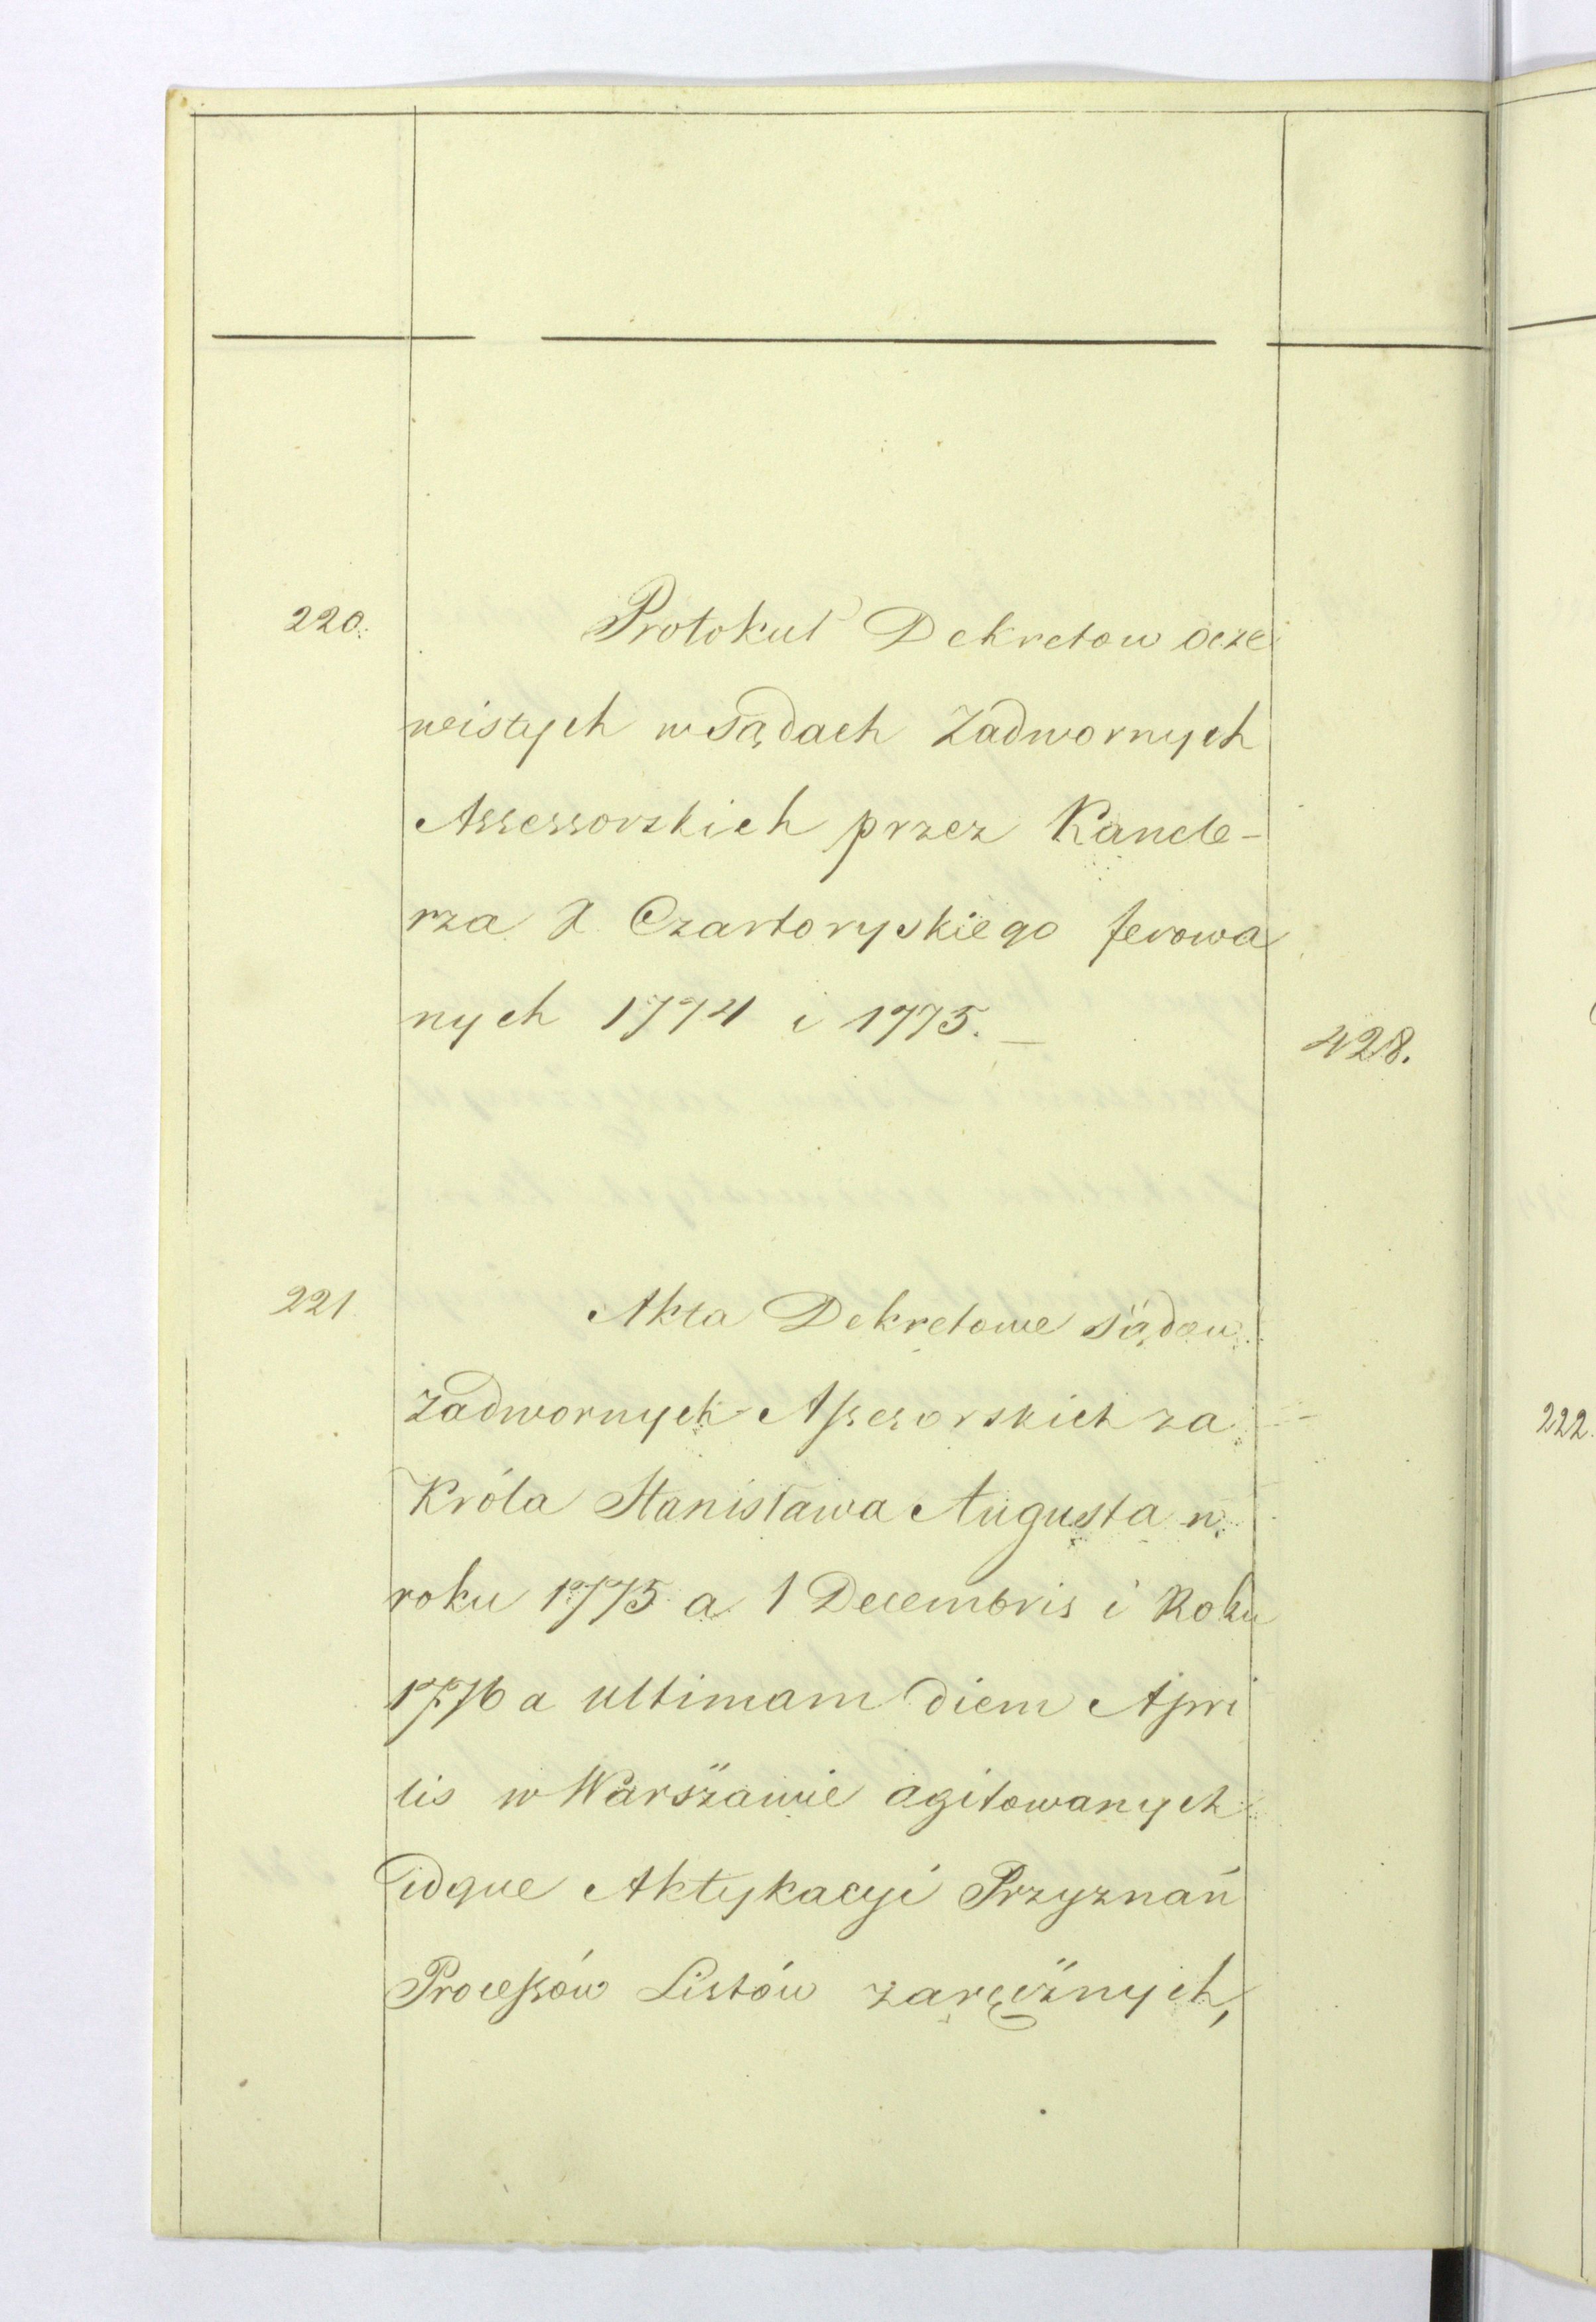 220.
Protokuł Dekretow ocze
wistych w Sądach Zadwornych
Assessorskich przez Kancle-
rza X Czartoryskiego ferowa
nych 1774 i 1775. —
428.
221
Akta Dekretowe sądow
Zadwornych Assesorskich za
Króla Stanisława Augusta w
roku 1775 a 1 Decembris i Roku
1776 a ultimam diem Apri
lis w Warszawie agitowanych
idque Aktykacyi Przyznań
Processów Listów zaręcznych,
222.